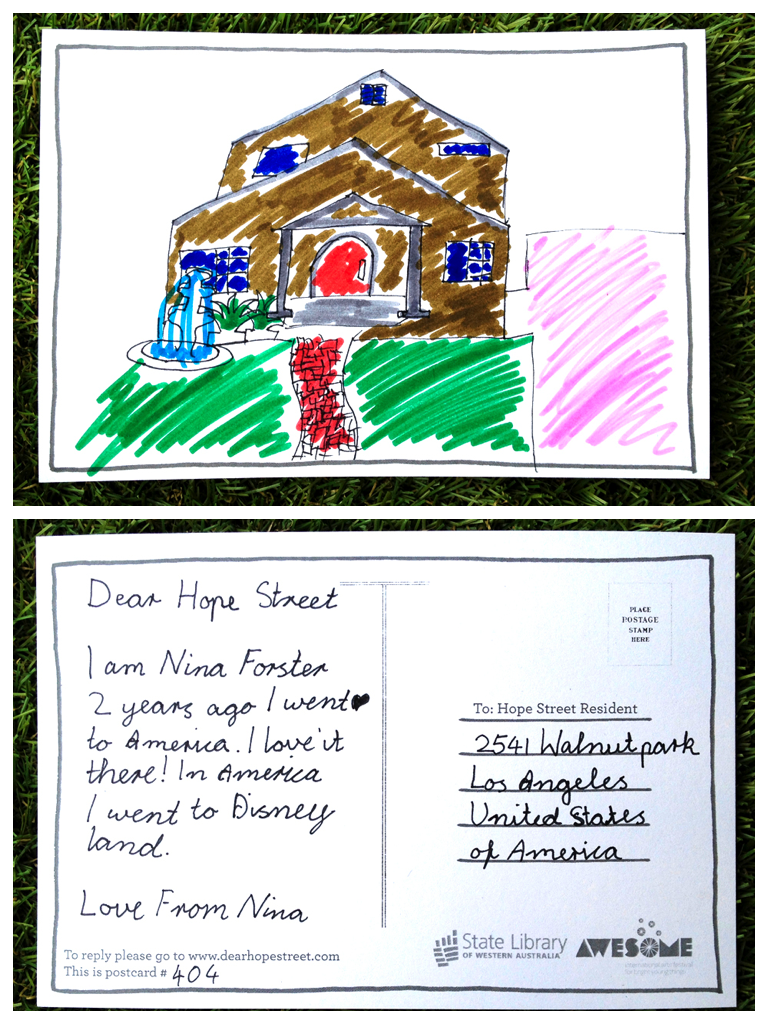 Dear Hope Street
I am Nina Forster
2 years ago I went
to America. I love it
there! In America
I went to Disney
land.
Love From Nina
To reply please go to www.dearhopestreet.com
This is postcard # 404
PLACE
POSTAGE
STAMP
HERE
To: Hope Street Resident
2541 Walnutpark
Los Angeles
United States
of America
State Library
OF WESTERN AUSTRALIA
AWESOME